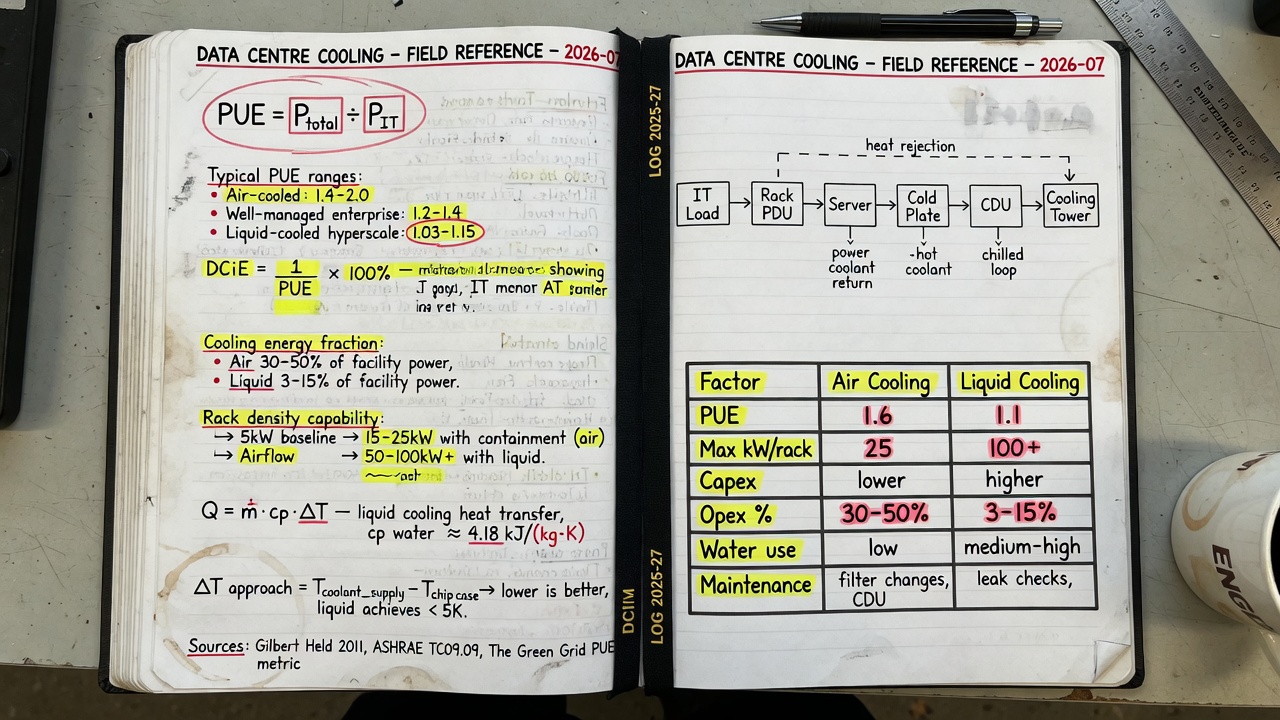 DATA CENTRE COOLING – FIELD REFERENCE – 2026-07
PUE = Ptotal ÷ PIT
Typical PUE ranges:
• Air-cooled: 1.4–2.0
• Well-managed enterprise: 1.2–1.4
• Liquid-cooled hyperscale: 1.03–1.15
DCiE = 1/PUE × 100% — showing
IT AT
Cooling energy fraction:
• Air 30–50% of facility power,
• Liquid 3–15% of facility power.
Rack density capability:
↪ 5kW baseline → 15–25kW with containment (air)
↪ Airflow → 50–100kW+ with liquid.
Q = ṁ · cp · ΔT — liquid cooling heat transfer,
cp water ≈ 4.18 kJ/(kg·K)
ΔT approach = Tcoolant_supply – Tchip case → lower is better,
liquid achieves < 5K.
Sources: Gilbert Held 2011, ASHRAE TC09.09, The Green Grid PUE
metric
LOG 2025-27
DCIM
LOG 2025-27
DATA CENTRE COOLING – FIELD REFERENCE – 2026-07
heat rejection
IT Load
Rack PDU
Server
Cold Plate
CDU
Cooling Tower
power
coolant
return
-hot
coolant
chilled
loop
Factor Air Cooling Liquid Cooling
PUE 1.6 1.1
Max kW/rack 25 100+
Capex lower higher
Opex % 30–50% 3–15%
Water use low medium-high
Maintenance filter changes, CDU leak checks,